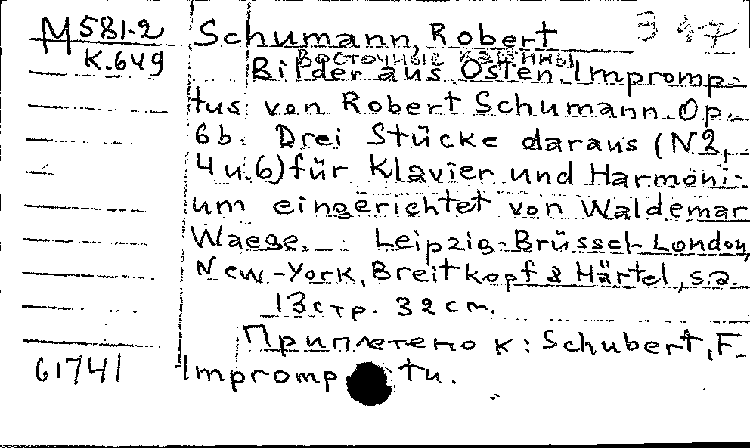 М 581-2 Schumann, Robert
К.649 восточные картины
Bilder aus Osten. Impromp-
tus von Robert Schumann. Op.
66. Drei Stücke daraus (N2,
4 u. 6) für Klavier und Harmoni-
um eingerichtet von Waldemar
Waege. — Leipzig-Brüssel-London,
New-York, Breitkopf & Härtel, s.a.
13 стр. 32 cm.
Приплетено к: Schubert, F.
61741 Impromptu.